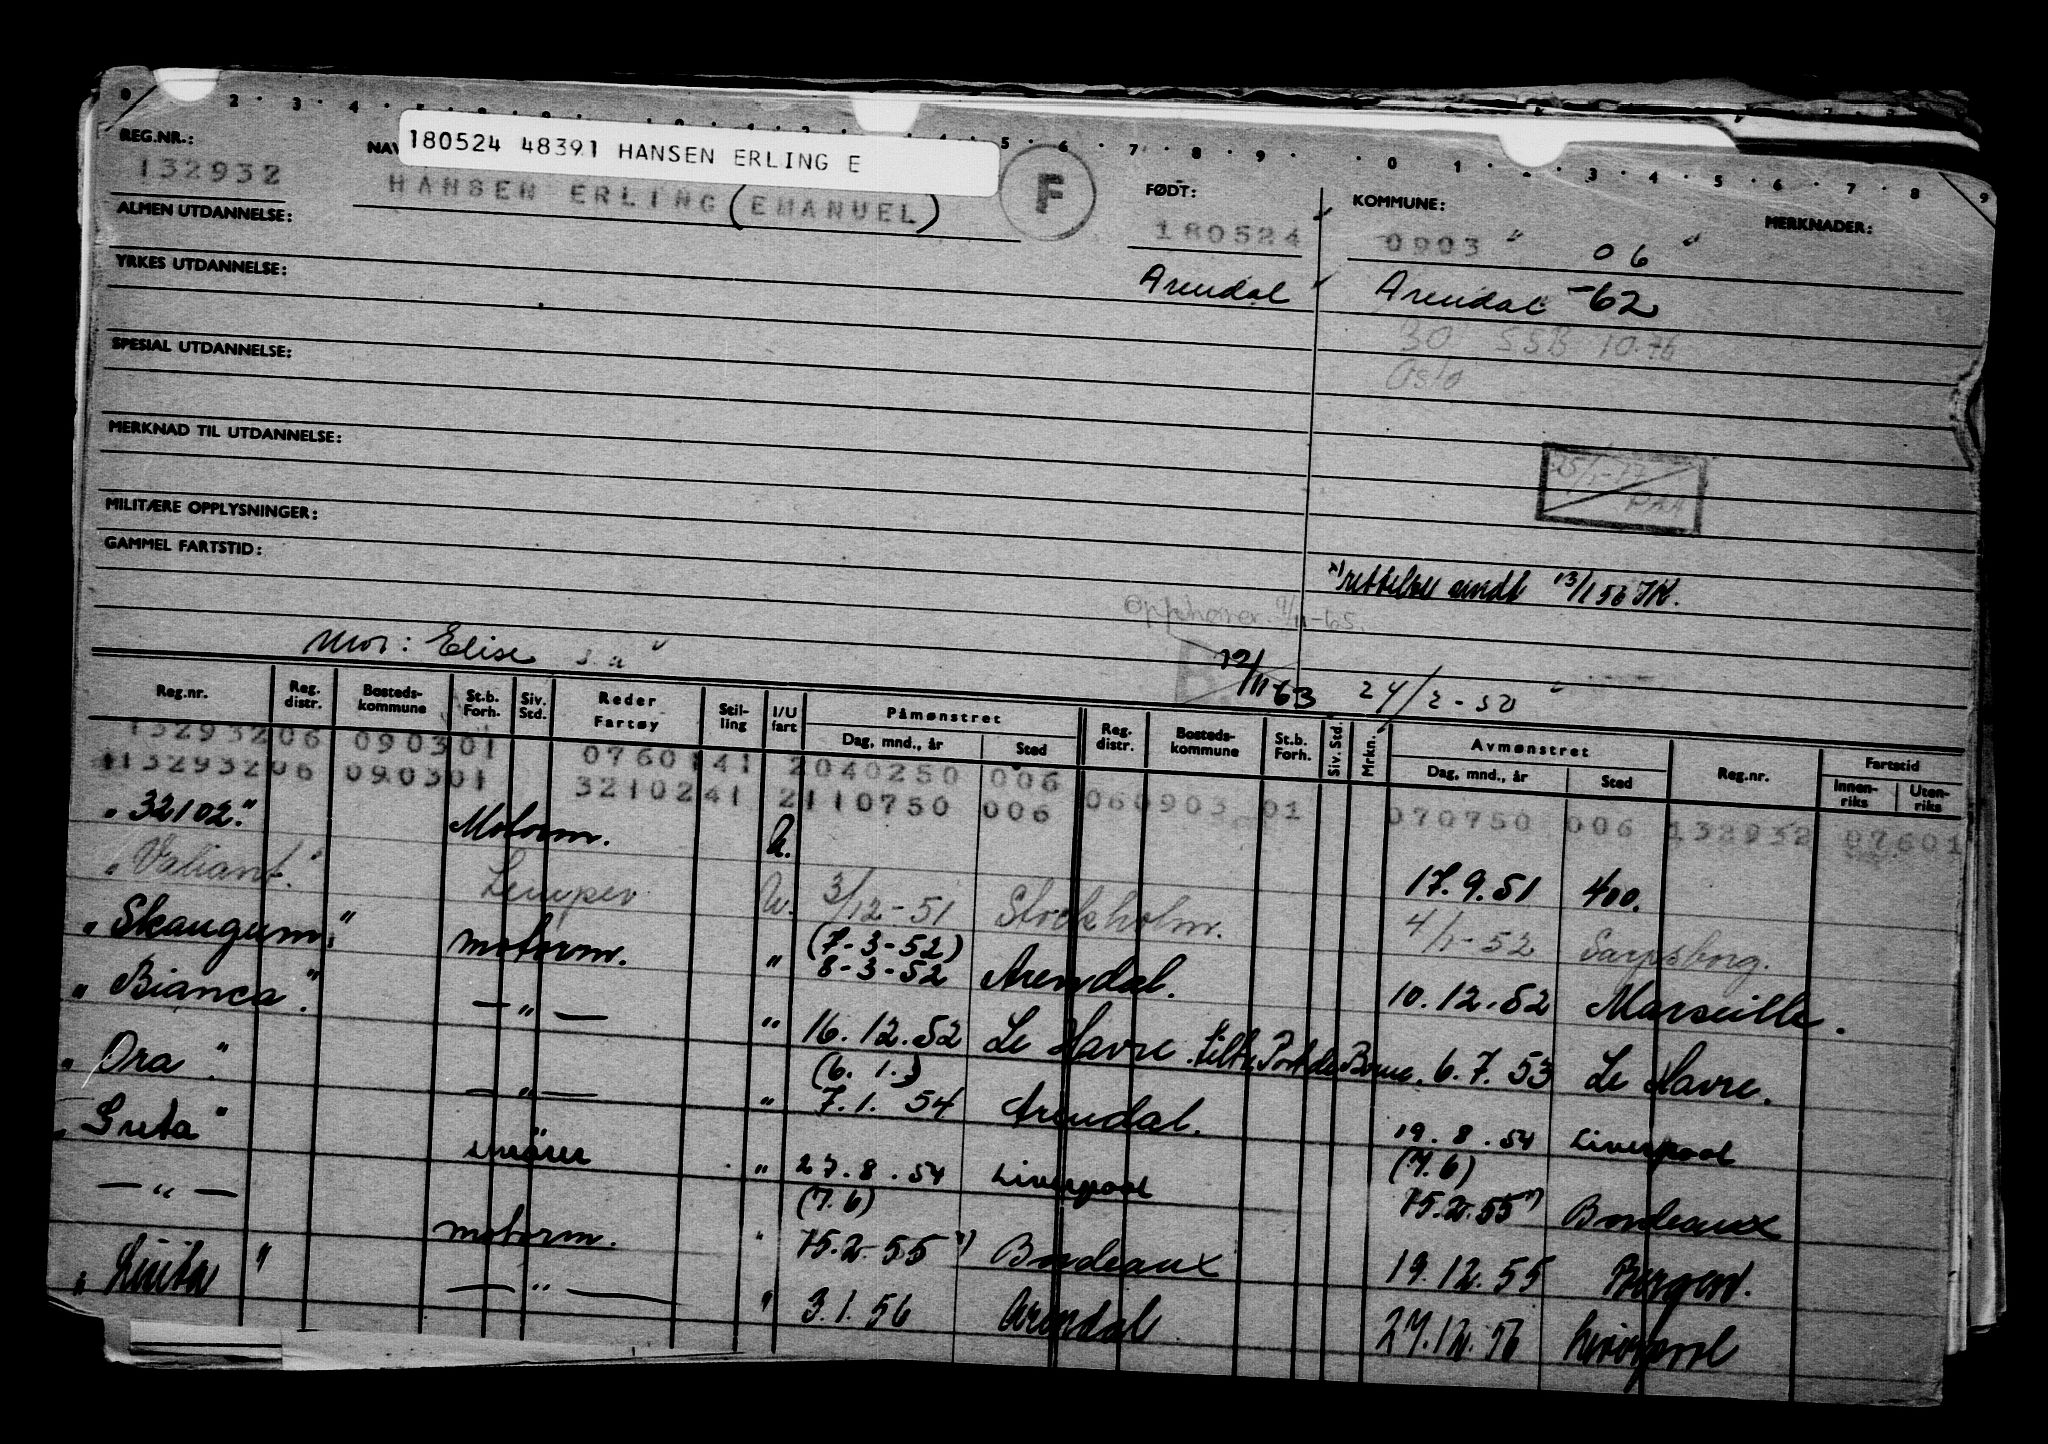 180524 48391 HANSEN ERLING E
REG.NR.: NAV
132932 HANSEN ERLING (EMANUEL) F
FØDT: 180524
Arendal
KOMMUNE: MERKNADER:
0903 " 06 "
Arendal -62
30 SSB 10.76
Oslo
ALMEN UTDANNELSE:
YRKES UTDANNELSE:
SPESIAL UTDANNELSE:
MERKNAD TIL UTDANNELSE:
MILITÆRE OPPLYSNINGER:
GAMMEL FARTSTID:
x) rettelse sendt 13/1 56 JK.
Opphører 9/11-65.
Mor: Elise s. å "
12/11-63 24/2-50 "
Reg.nr. Reg. distr. Bosteds-kommune St.b. Forh. Siv. Std. Reder Fartøy Stil-ling I/U fart Påmønstret Dag, mnd., år Sted Reg. distr. Bosteds-kommune St.b. Forh. Siv. Std. Mrkn. Avmønstret Dag, mnd., år Sted Reg.nr. Fartstid Innen-riks Uten-riks
132932 06 0903 01 0760141 2 040250 006
132932 06 0903 01 3210241 2 110750 006 06 0903 01 070750 006 132932 07601
"32102." Motorm. U. 17.9.51 400.
"Valiant." Lemper U. 3/12-51 Stockholm. 4/1-52 Sarpsborg.
"Skaugum." motorm. " (7-3-52) 8-3-52 Arendal. 10.12.52 Marseille.
"Bianca." — " — " 16.12.52 Le Havre. Port de Bouc. 6.7.53 Le Havre.
"Ora". — " — " (6. 1.) 7.1. 54 Arendal. 19.8.54 Liverpool
"Greta" smörer " 27.8.54 Liverpool (7.6) 15.2.55 x) Bordeaux
— " — motorm. " (7.6) 15.2-55 x) Bordeaux 19.12.55 Bergen.
— " — " 3.1.56 Arendal 27.12.56 Liverpool